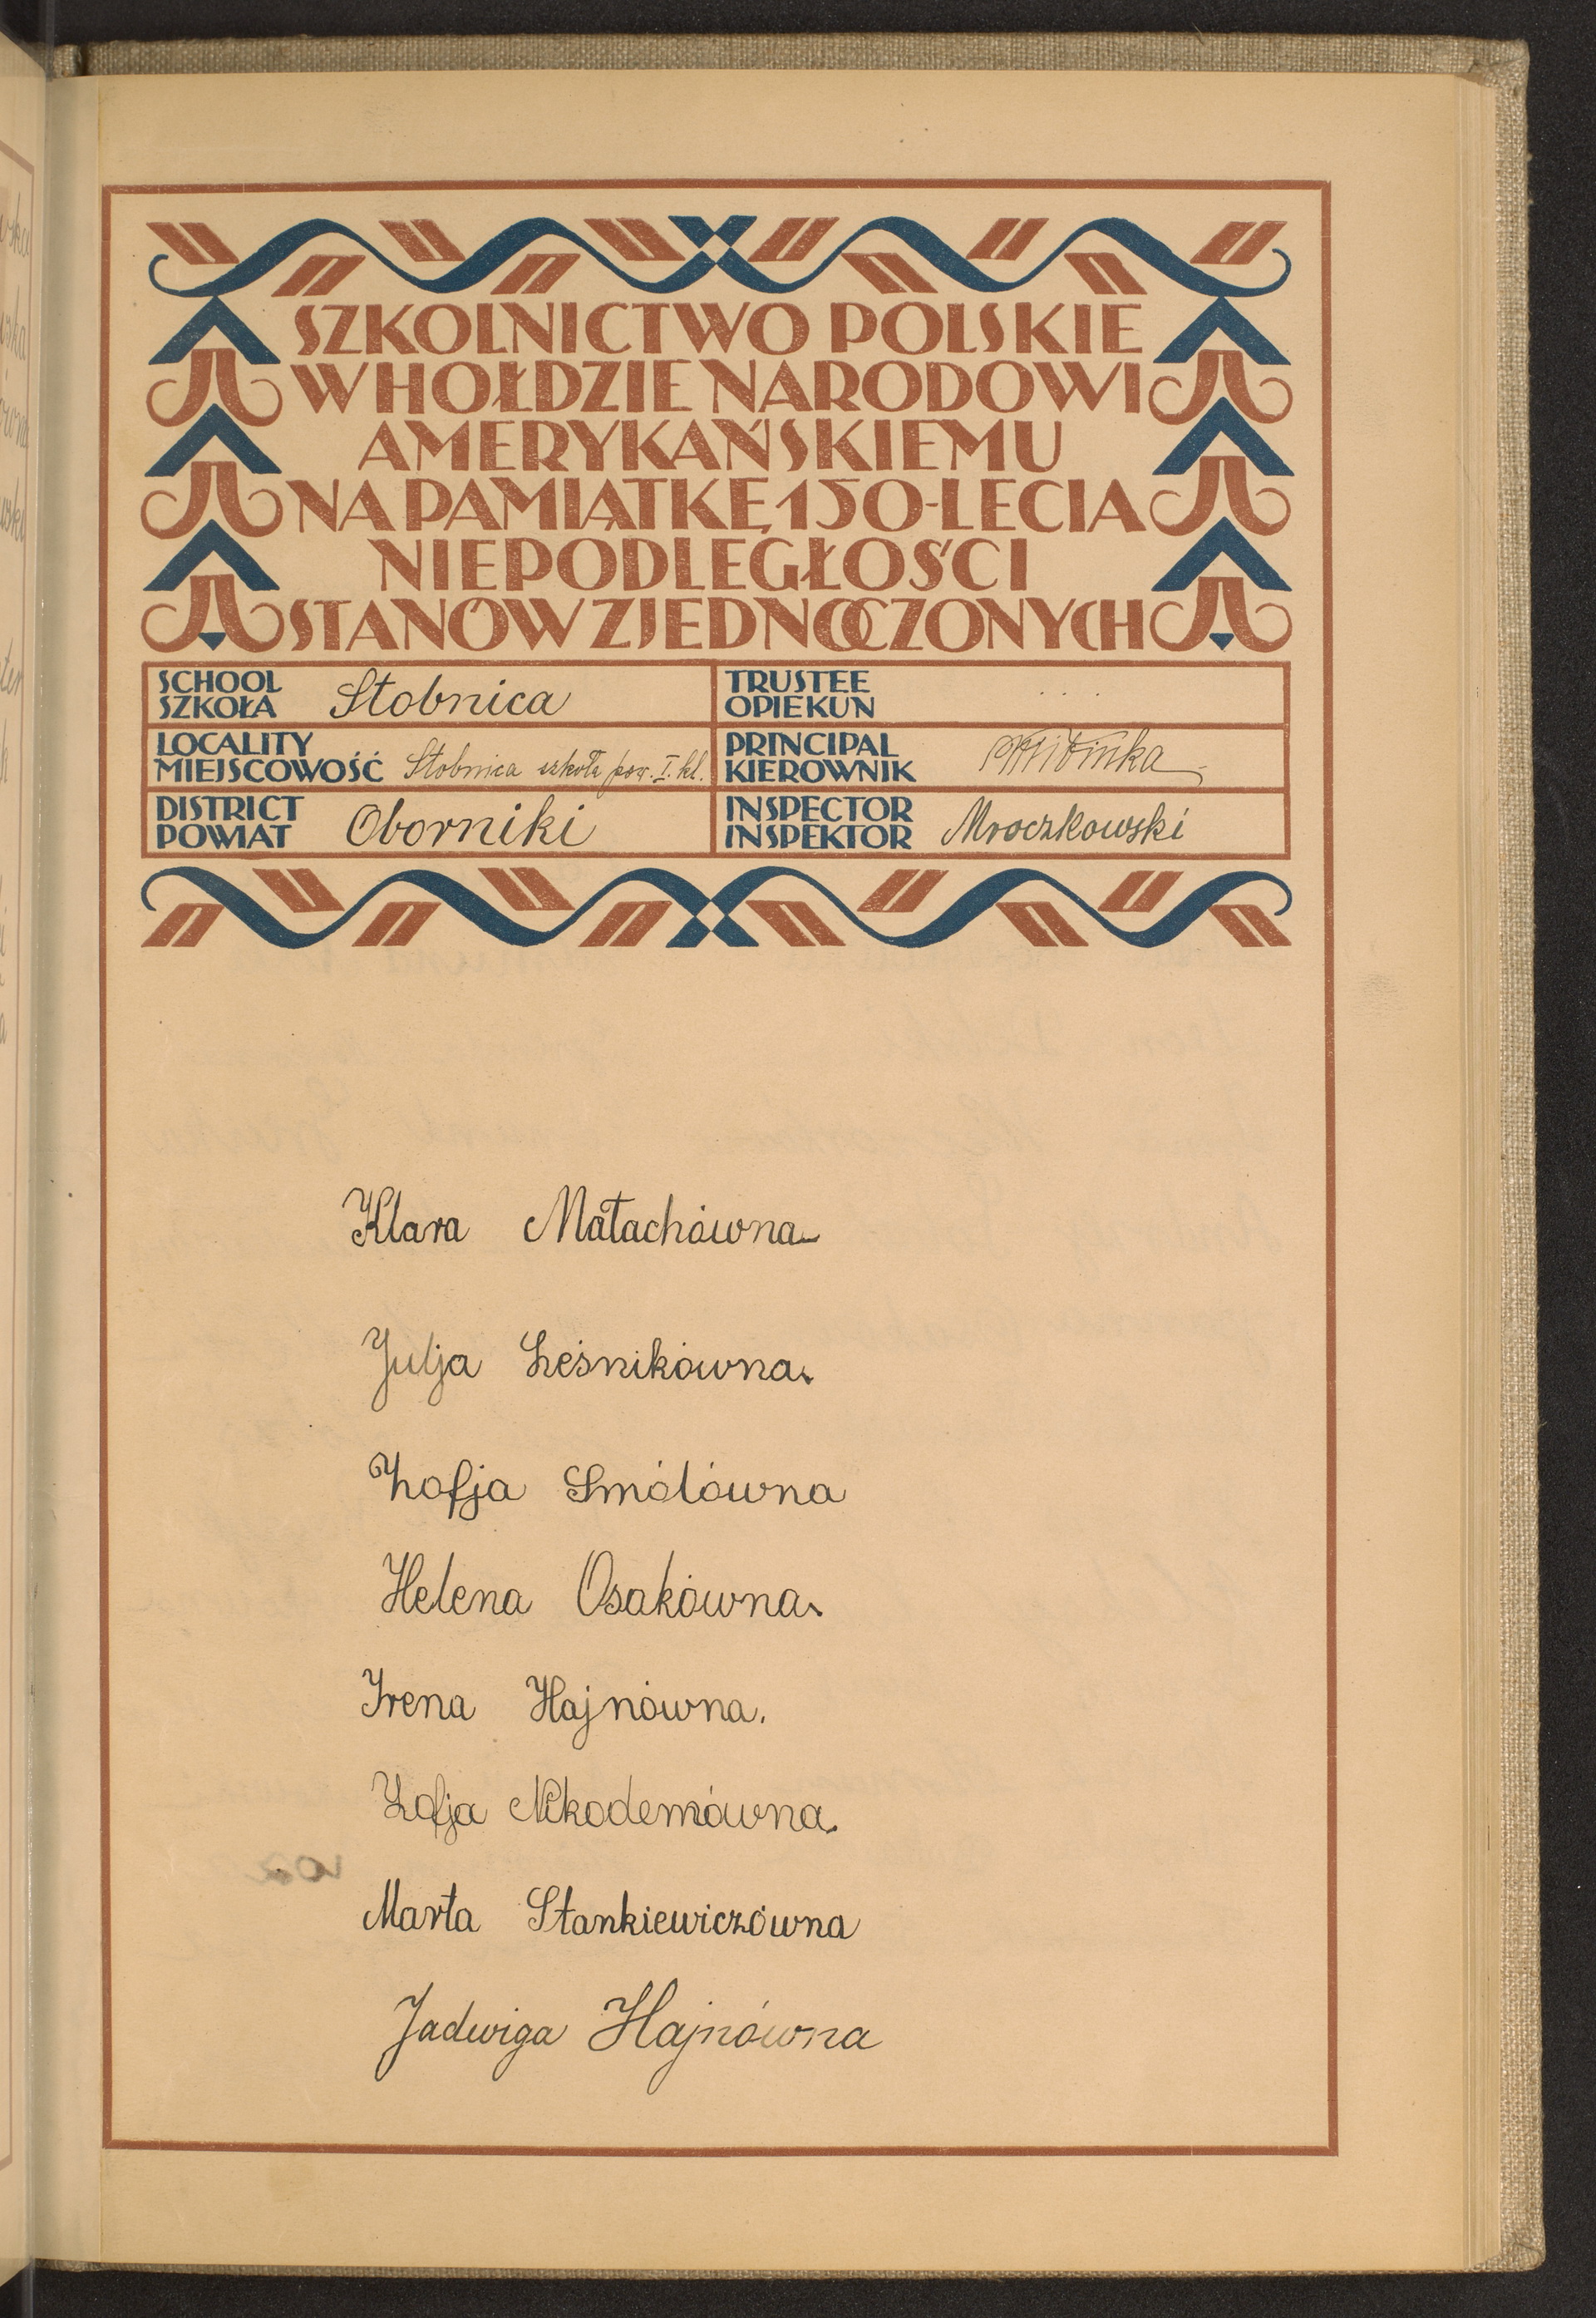 SZKOLNICTWO POLSKIE
W HOŁDZIE NARODOWI
AMERYKAŃSKIEMU
NA PAMIĄTKĘ 150-LECIA
NIEPODLEGŁOŚCI
STANÓW ZJEDNOCZONYCH
SCHOOL
SZKOŁA Stobnica
TRUSTEE
OPIEKUN . . .
LOCALITY
MIEJSCOWOŚĆ Stobnica szkoła pow. I. kl.
PRINCIPAL
KIEROWNIK
DISTRICT
POWIAT Oborniki
INSPECTOR
INSPEKTOR Mroczkowski
Klara Małachówna
Julja Leśnikówna.
Zofja Smólówna
Helena Osakówna.
Irena Hajnówna.
Zofja Nikodemówna.
Marta Stankiewiczówna
Jadwiga Hajnówna